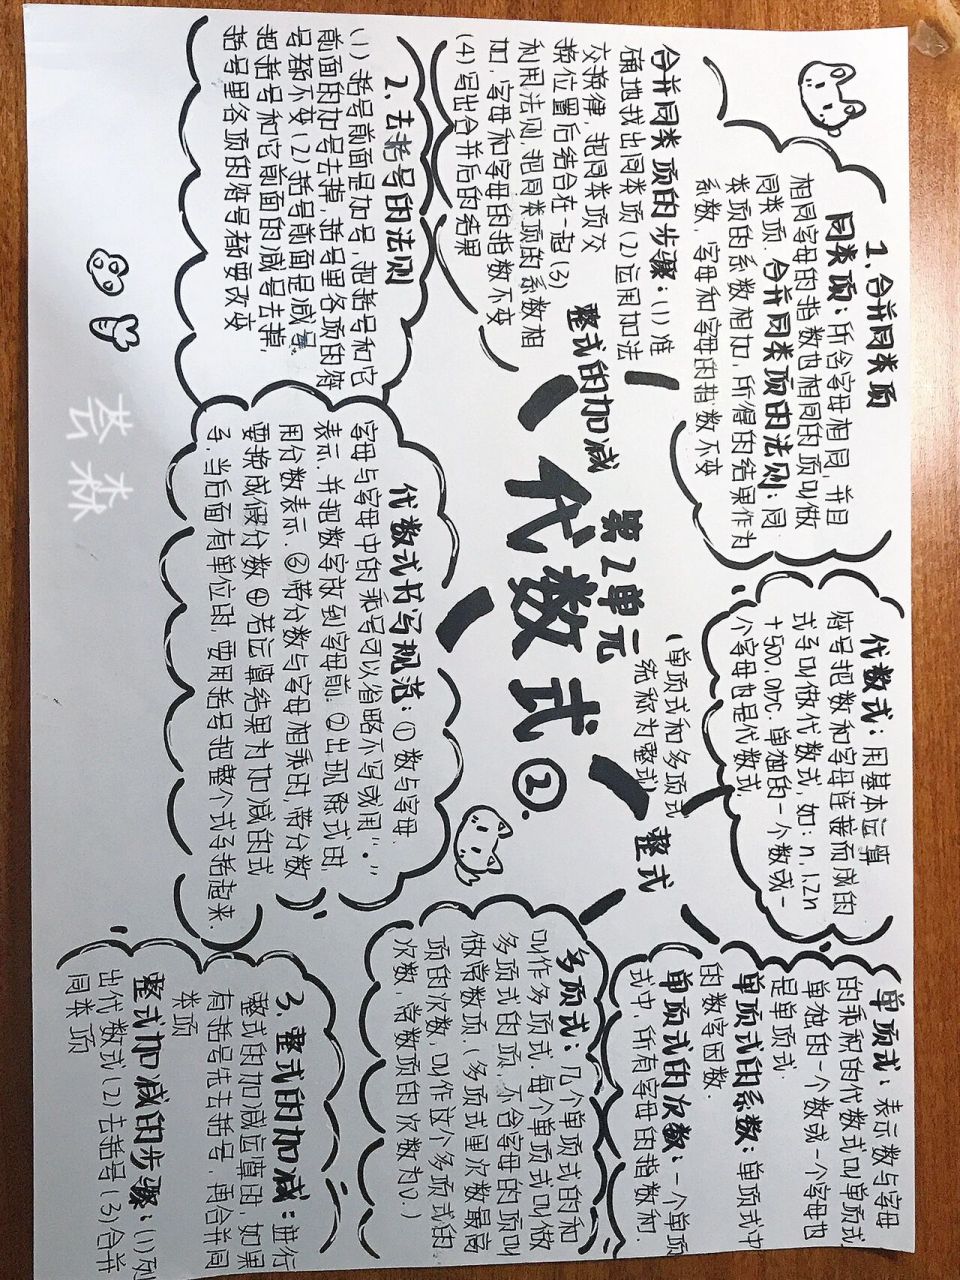 1、合并同类项
同类项：所含字母相同，并且
相同字母的指数也相同的项叫做
同类项，合并同类项的法则：同
类项的系数相加，所得的结果作为
系数，字母和字母的指数不变
合并同类项的步骤：(1)准
确地找出同类项(2)运用加法
交换律，把同类项交
换位置后结合在一起(3)
利用法则，把同类项的系数相
加，字母和字母的指数不变
(4)写出合并后的结果
2、去括号的法则
(1)括号前面是加号，把括号和它
前面的加号去掉，括号里各项的符
号都不变(2)括号前面是减号，
把括号和它前面的减号去掉，
括号里各项的符号都要改变
整式的加减
第2单元
代数式②.
代数式：用基本运算
符号把数和字母连接而成的
式子叫做代数式，如：n，1.2n
+500，abc. 单独的一个数或一
个字母也是代数式
(单项式和多项式
统称为整式)
整式
代数式书写规范：①数与字母，
字母与字母中的乘号可以省略不写或用“·”
表示，并把数字放到字母前。②出现除式时，
用分数表示。③带分数与字母相乘时，带分数
要换成假分数④若运算结果为加减的式
子，当后面有单位时，要用括号把整个式子括起来.
单项式：表示数与字母
的乘积的代数式叫单项式，
单独的一个数或一个字母也
是单项式.
单项式的系数：单项式中
的数字因数.
单项式的次数：一个单项
式中，所有字母的指数和.
多项式：几个单项式的和
叫作多项式，每个单项式叫做
多项式的项，不含字母的项叫
做常数项.(多项式里次数最高
项的次数，叫作这个多项式的
次数，常数项的次数为0.)
3、整式的加减：进行
整式的加减运算时，如果
有括号先去括号，再合并同
类项
整式加减的步骤：(1)列
出代数式(2)去括号(3)合并
同类项